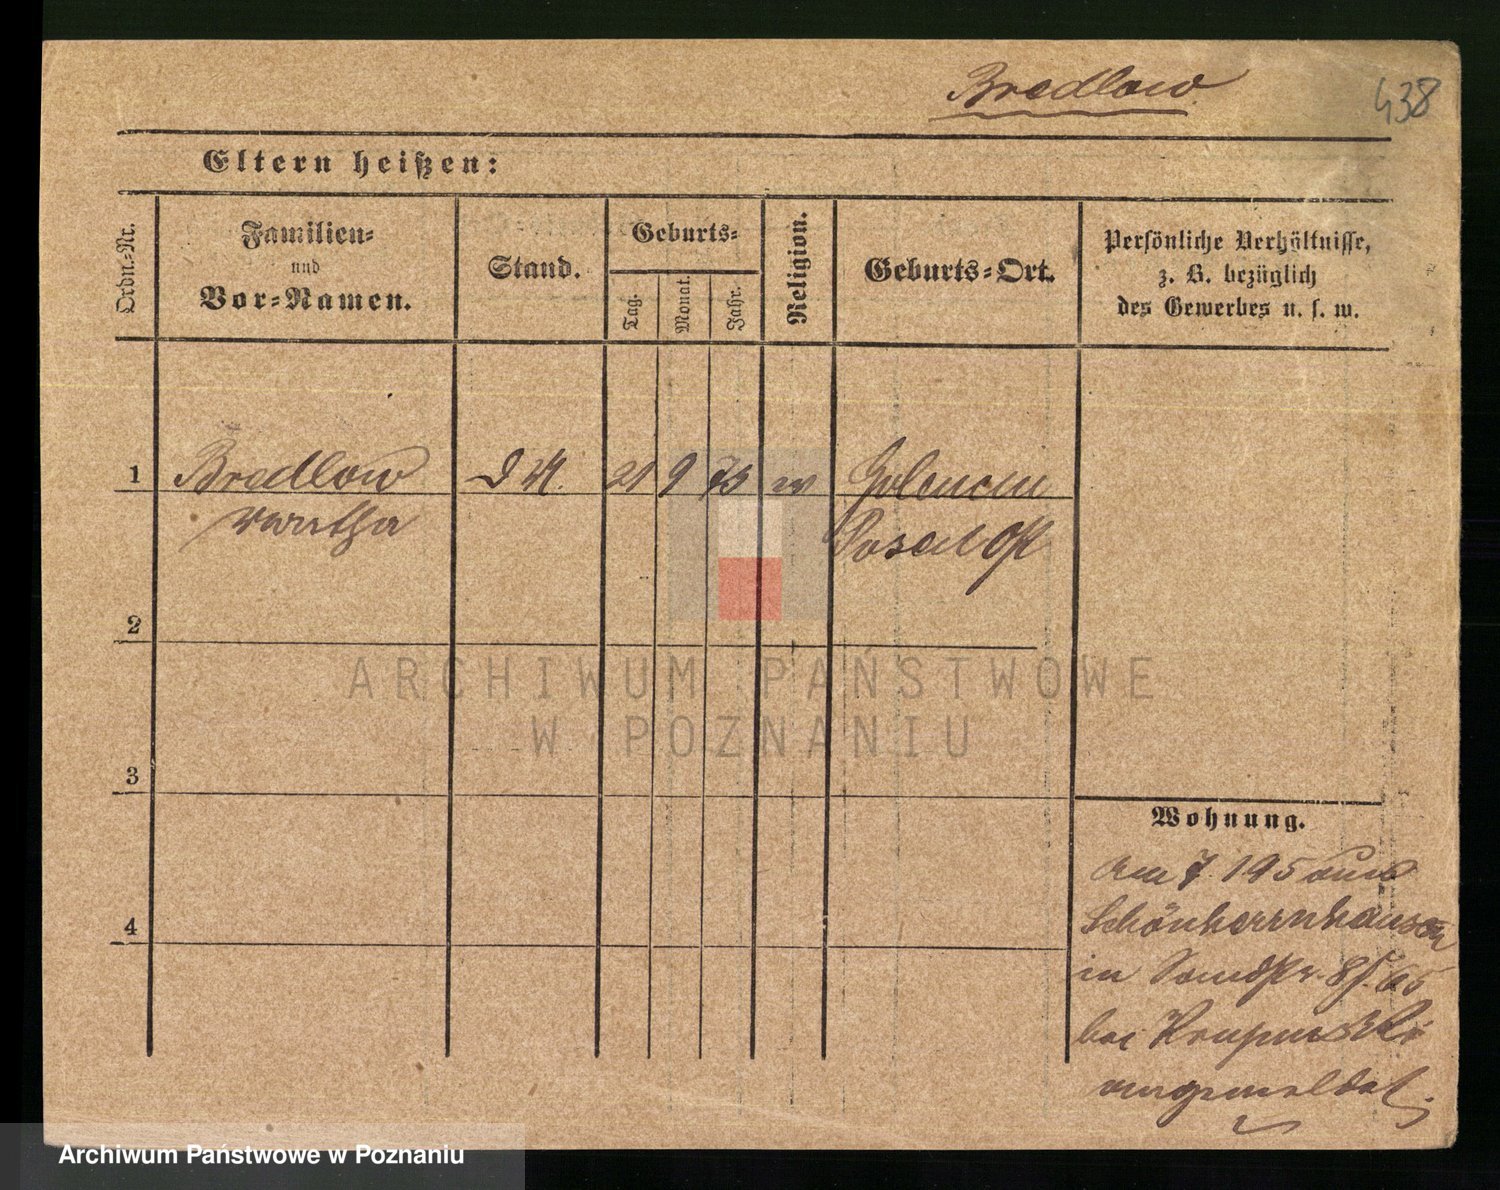 Bredlow
438
Eltern heißen:
Ordn.-Nr.
Familien-
und
Vor-Namen.
Stand.
Geburts-
Tag.
Monat.
Jahr.
Religion.
Geburts-Ort.
Persönliche Verhältnisse,
z. B. bezüglich
des Gewerbes u. s. w.
1
Bredlow
Martha
D M.
21
9
75
ev
Golencin
Posen Ost
2
ARCHIWUM PAŃSTWOWE
W POZNANIU
3
Wohnung.
Am 7. 1 95 aus
Schönherrnhausen
in Sandstr. 8
bei Krupinski
angemeldet.
4
Archiwum Państwowe w Poznaniu